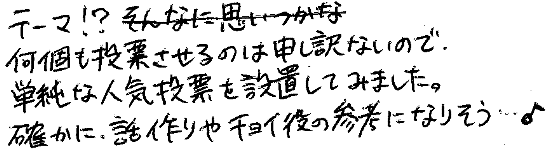 テーマ!? そんなに思いつかな
何個も投票させるのは申し訳ないので、
単純な人気投票を設置してみました。
確かに、話作りやチョイ役の参考になりそう…♪